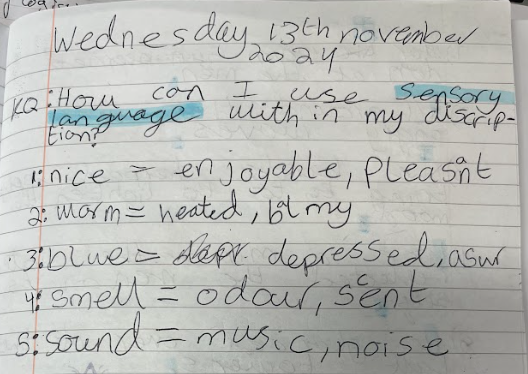 Wednesday 13th november
2024
KQ: How can I use sensory
language with in my discrip-
tion?
1: nice = enjoyable, Pleasant
2: warm = heated, balmy
3: blue = depressed, asur
4: smell = odour, scent
5: sound = music, noise